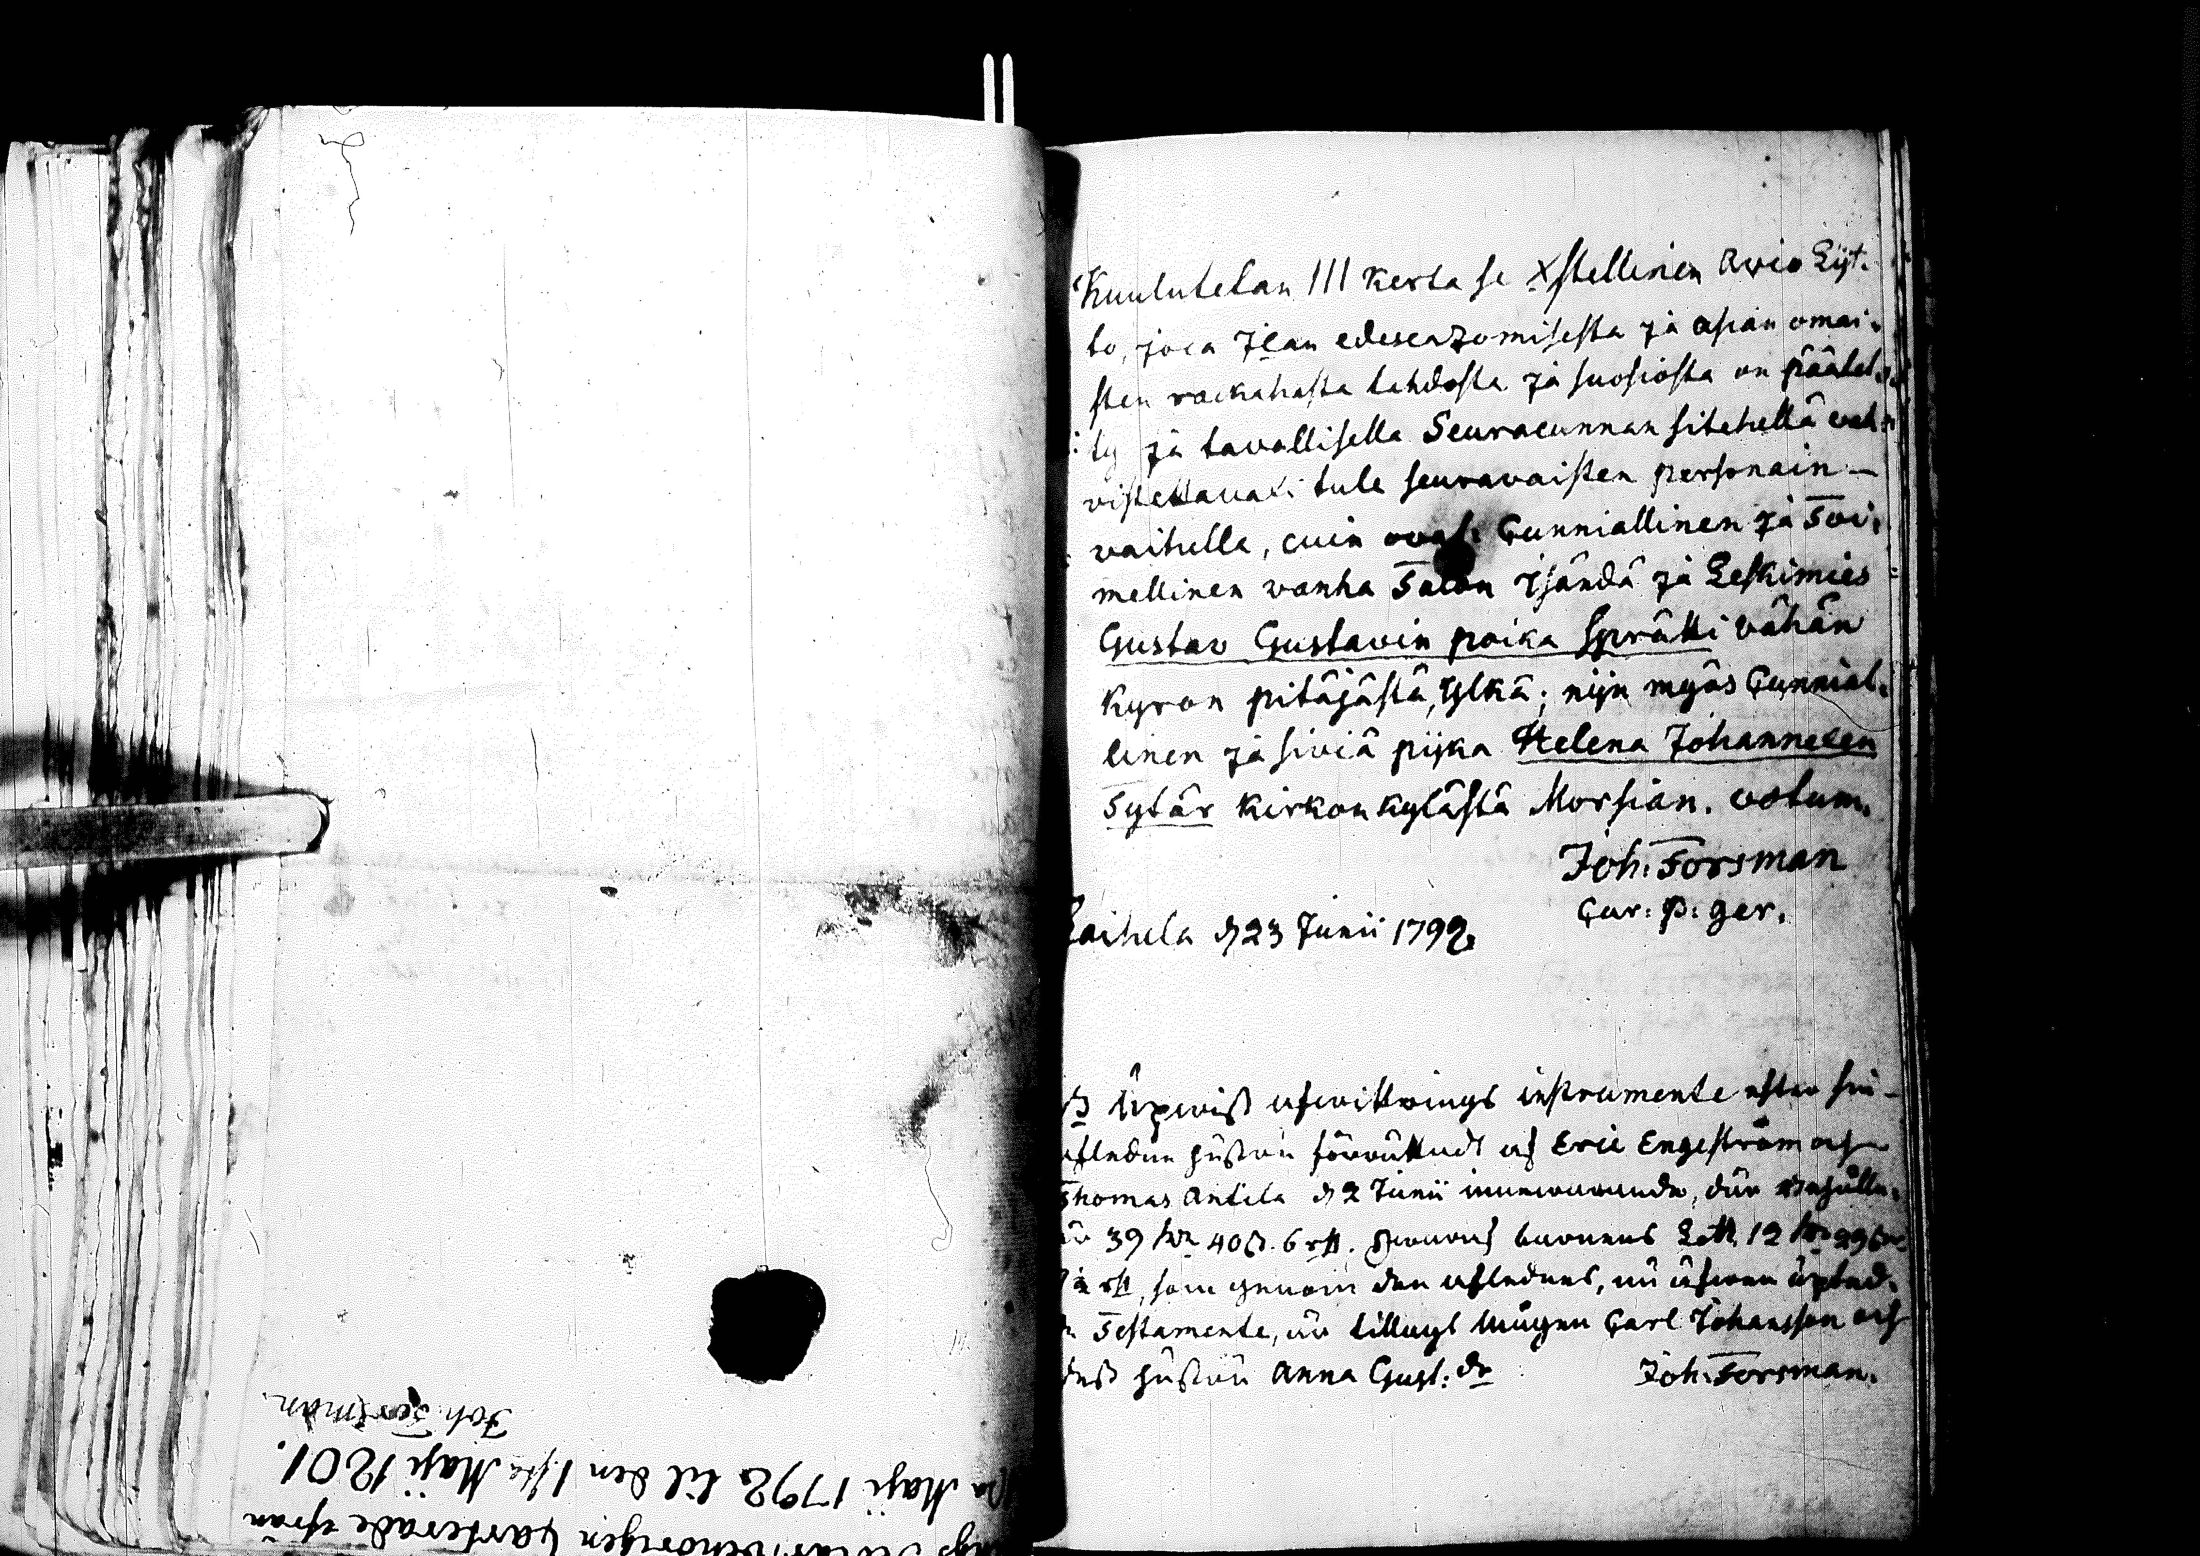 Kuulutetan III kerta se Xstellinen Avio Lijt-
to, joca Jlan edescazomisesta ja asian omai-
sten rackahasta tahdosta ja suosiosta on päätet-
ty ja tavallisella Seuracunnan sitehellä vah-
vistettava: tule seuravaisten personain
vaihella, cuin ovat: Cunniallinen ja Toi-
mellinen vanha Talon Isändä ja Leskimies
Gustav Gustavin poika Sprätti Vähän
Kyrön pitäjästä, Ylkä; nijn myös Cunnial-
linen ja siviä pijka Helena Johannexen
Tytär Kirkonkylästä Morsian. votum.
Joh. Forsman
Cur: P: ger.
Laihela d 23 Junii 1792.
Upwist afwittrings instrumente efter
afledne hustru förrättadt af Eric Engeström och
Thomas Antila d 2 Junii innewarande, där
är 39 40 ß. 6 rst. hwaraf barnens Lott 12 29 ß
rst, som genom den aflednes, nu äfwen
Testamente, är tillagt mågen Carl Johansson och
dess hustru Anna Gust: dr Joh. Forsman.
Qvarterade ifrån
Maji 1792 til den 1sta Maji 1801.
Joh. Forsman.